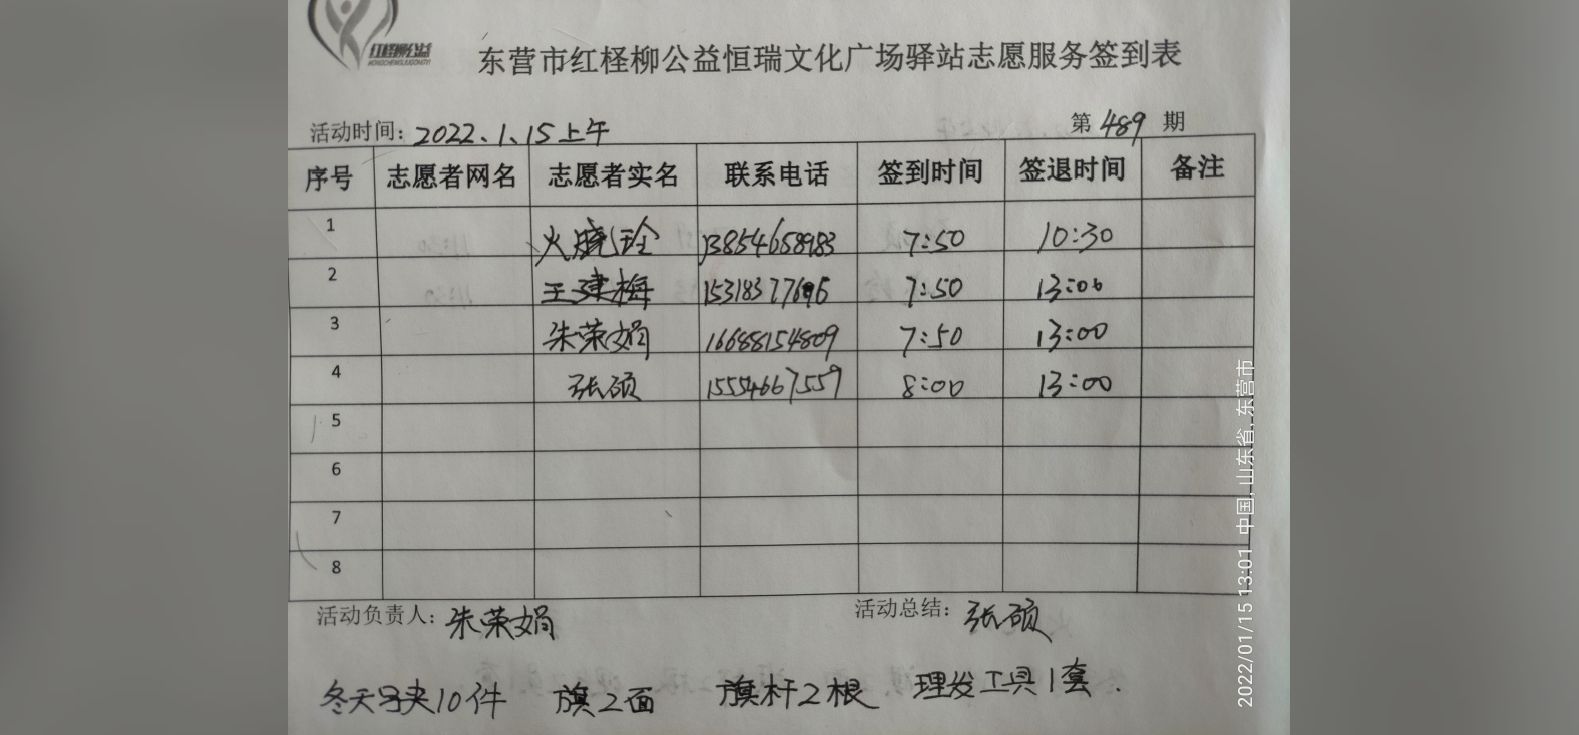 红柽柳公益
东营市红柽柳公益恒瑞文化广场驿站志愿服务签到表
活动时间：2022.1.15上午 第489期
序号 志愿者网名 志愿者实名 联系电话 签到时间 签退时间 备注
1 火晓玲 13854658983 7:50 10:30
2 王建梅 7:50 13:00
3 朱荣娟 16688154809 7:50 13:00
4 张硕 15554667559 8:00 13:00
5
6
7
8
活动负责人：朱荣娟 活动总结：张硕
冬天马夹10件 旗2面 旗杆2根 理发工具1套.
2022/01/15 13:01 中国, 山东省, 东营市